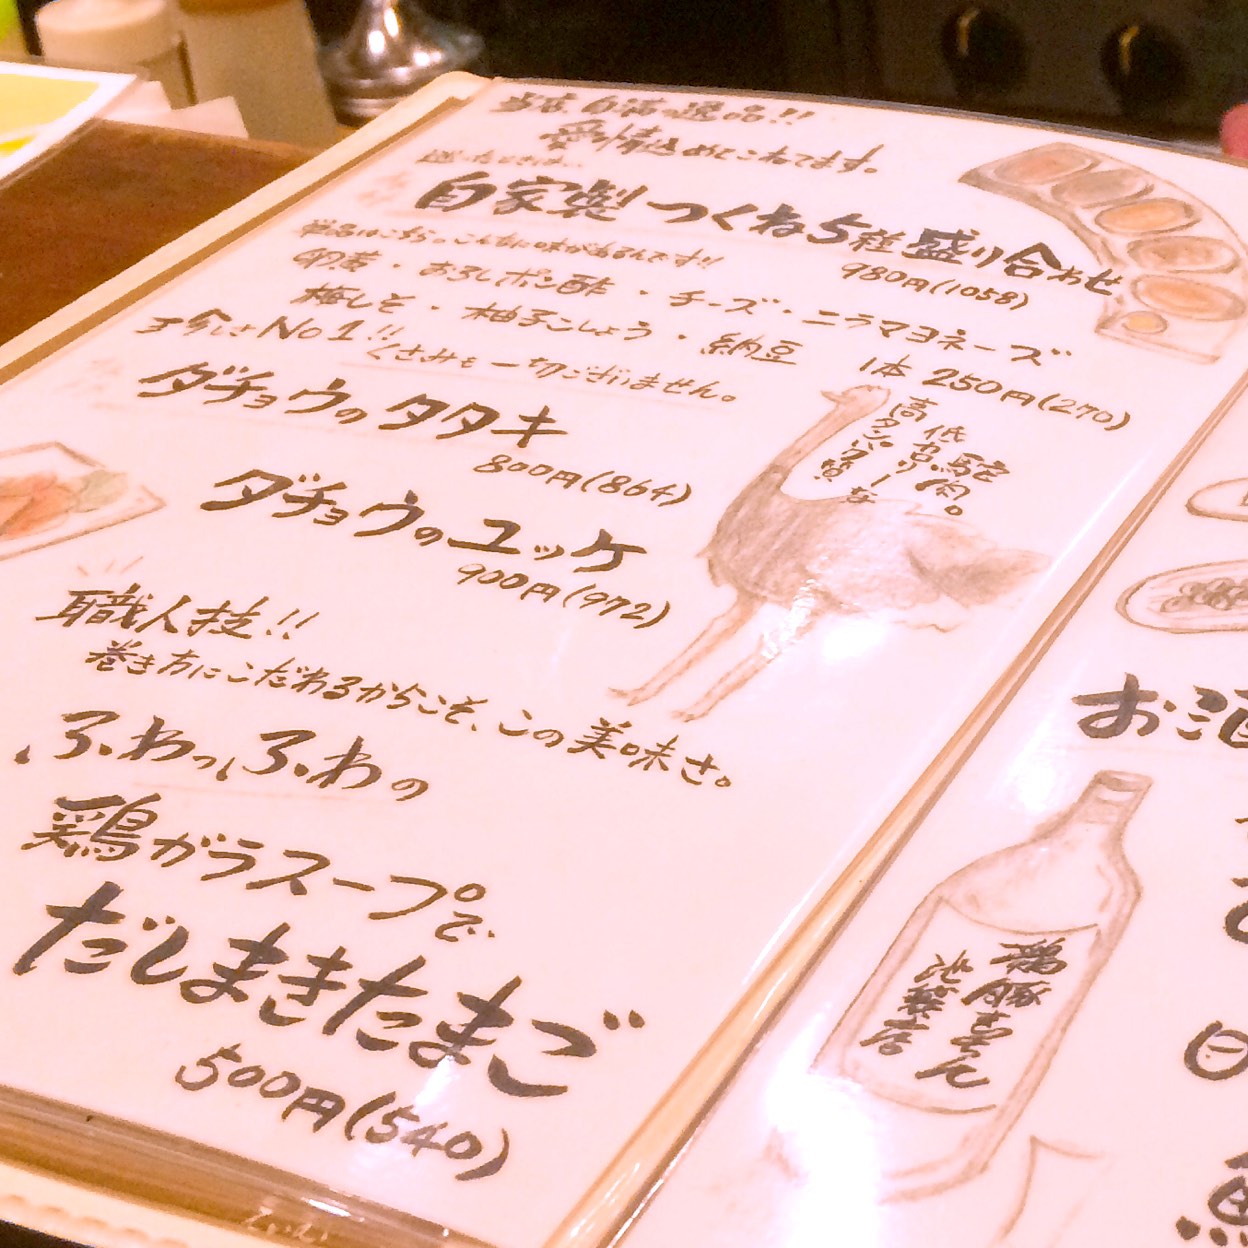 当店自満の逸品!!
愛情込めてこねてます。
迷ったときは、
自家製つくね5種盛り合わせ
980円(1058)
単品はこちら。こんなに味があるんです!!
卵黄・おろしポン酢・チーズ・ニラマヨネーズ
梅しそ・柚子こしょう・納豆 1本 250円(270)
珍しさNo1!! くさみも一切ございません。
ダチョウのタタキ
800円(864)
ダチョウのユッケ
900円(972)
高タンパク質な
低カロリー
駝肉。
職人技!!
巻き方にこだわるからこそ、この美味さ。
ふわっふわの
鶏ガラスープで
だしまきたまご
500円(540)
お酒
鶏豚きっちん
池袋店